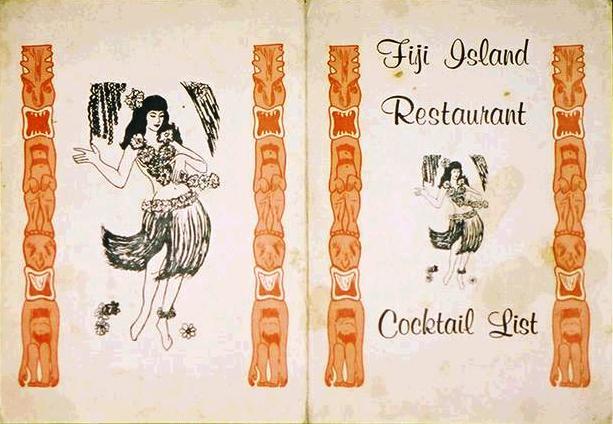 Fiji Island
Restaurant
Cocktail List